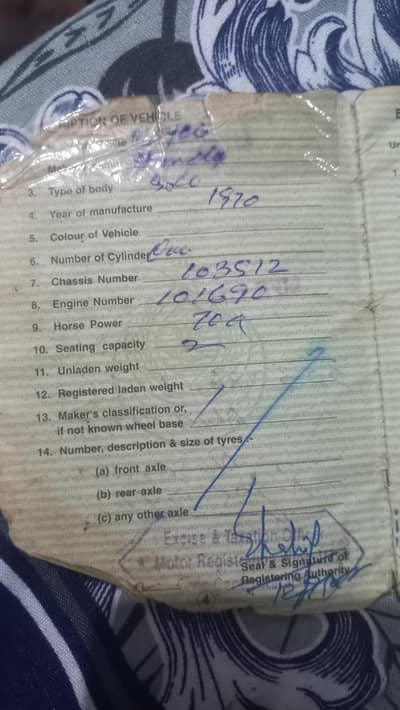 IPTION OF VEHICLE
3. Type of body Solo
4. Year of manufacture 1970
5. Colour of Vehicle
6. Number of Cylinder One
7. Chassis Number 103512
8. Engine Number 101690
9. Horse Power
10. Seating capacity 2
11. Unladen weight
12. Registered laden weight
13. Maker's classification or,
if not known wheel base
14. Number, description & size of tyres,-
(a) front axle
(b) rear axle
(c) any other axle
Excise & Taxation
Motor
Seal & Signature of
Registering Authority
(4)